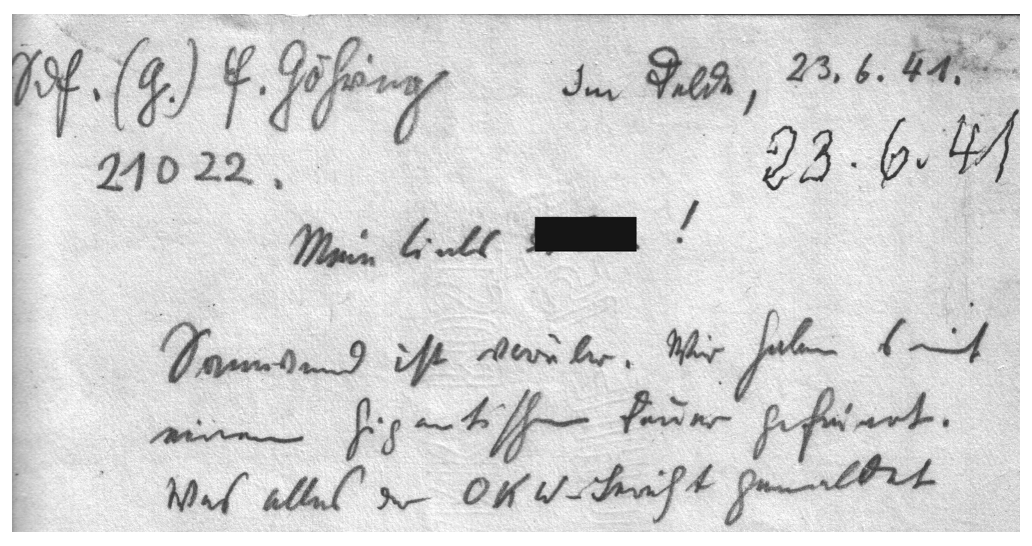 Sdf. (G.) F. Göhring Im Felde, 23. 6. 41.
21022. 23. 6. 41
Mein liebes !
Sonnwend ist vorüber. Wir haben es mit
einem gigantischen Feuer gefeiert.
Was alles der OKW-Bericht gemeldet